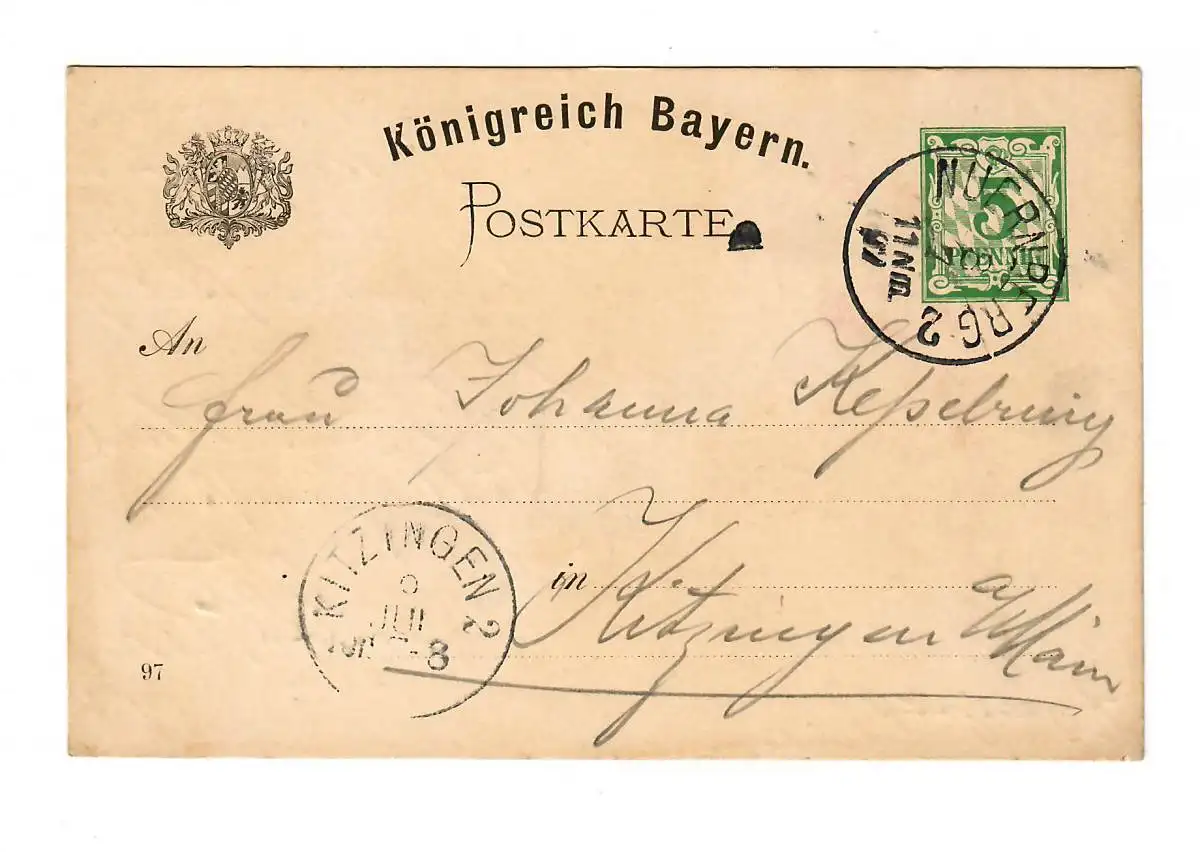 Königreich Bayern.
POSTKARTE
5
PFENNIG
NUERNBERG 2
11 NM.
97
An
Frau Johanna
in Kitzingen
a/Main
KITZINGEN 2
JUL
8
97